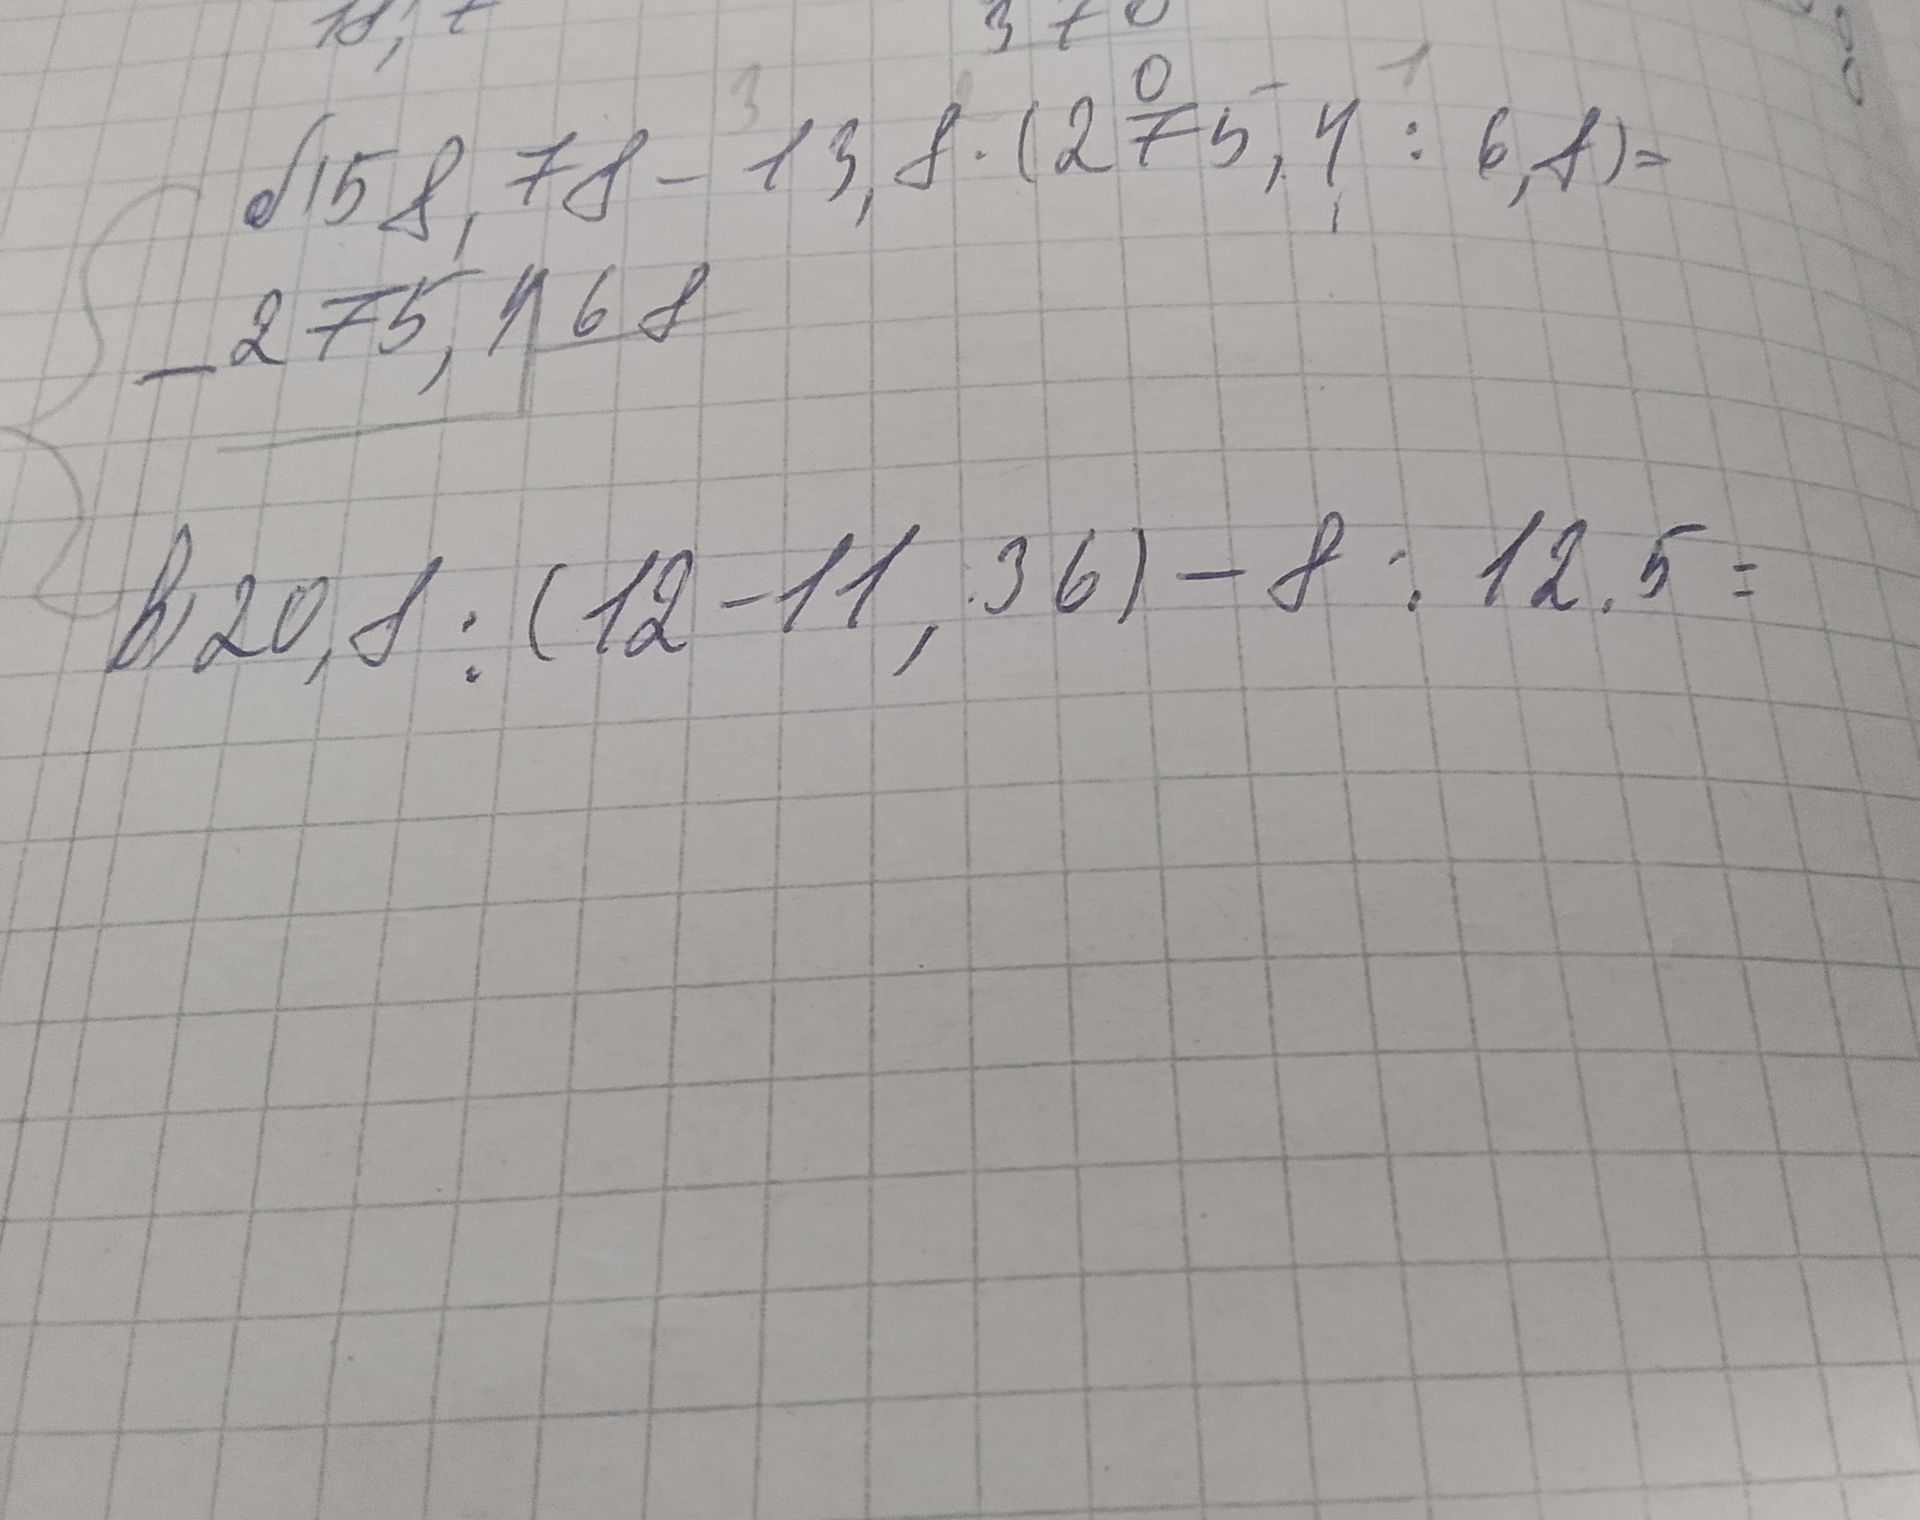 18,7
370
3 0 1
б) 158,78 - 13,8 · (275,4 : 6,8) =
- 275,4 | 68
в) 20,8 : (12 - 11,36) - 8 : 12.5 =